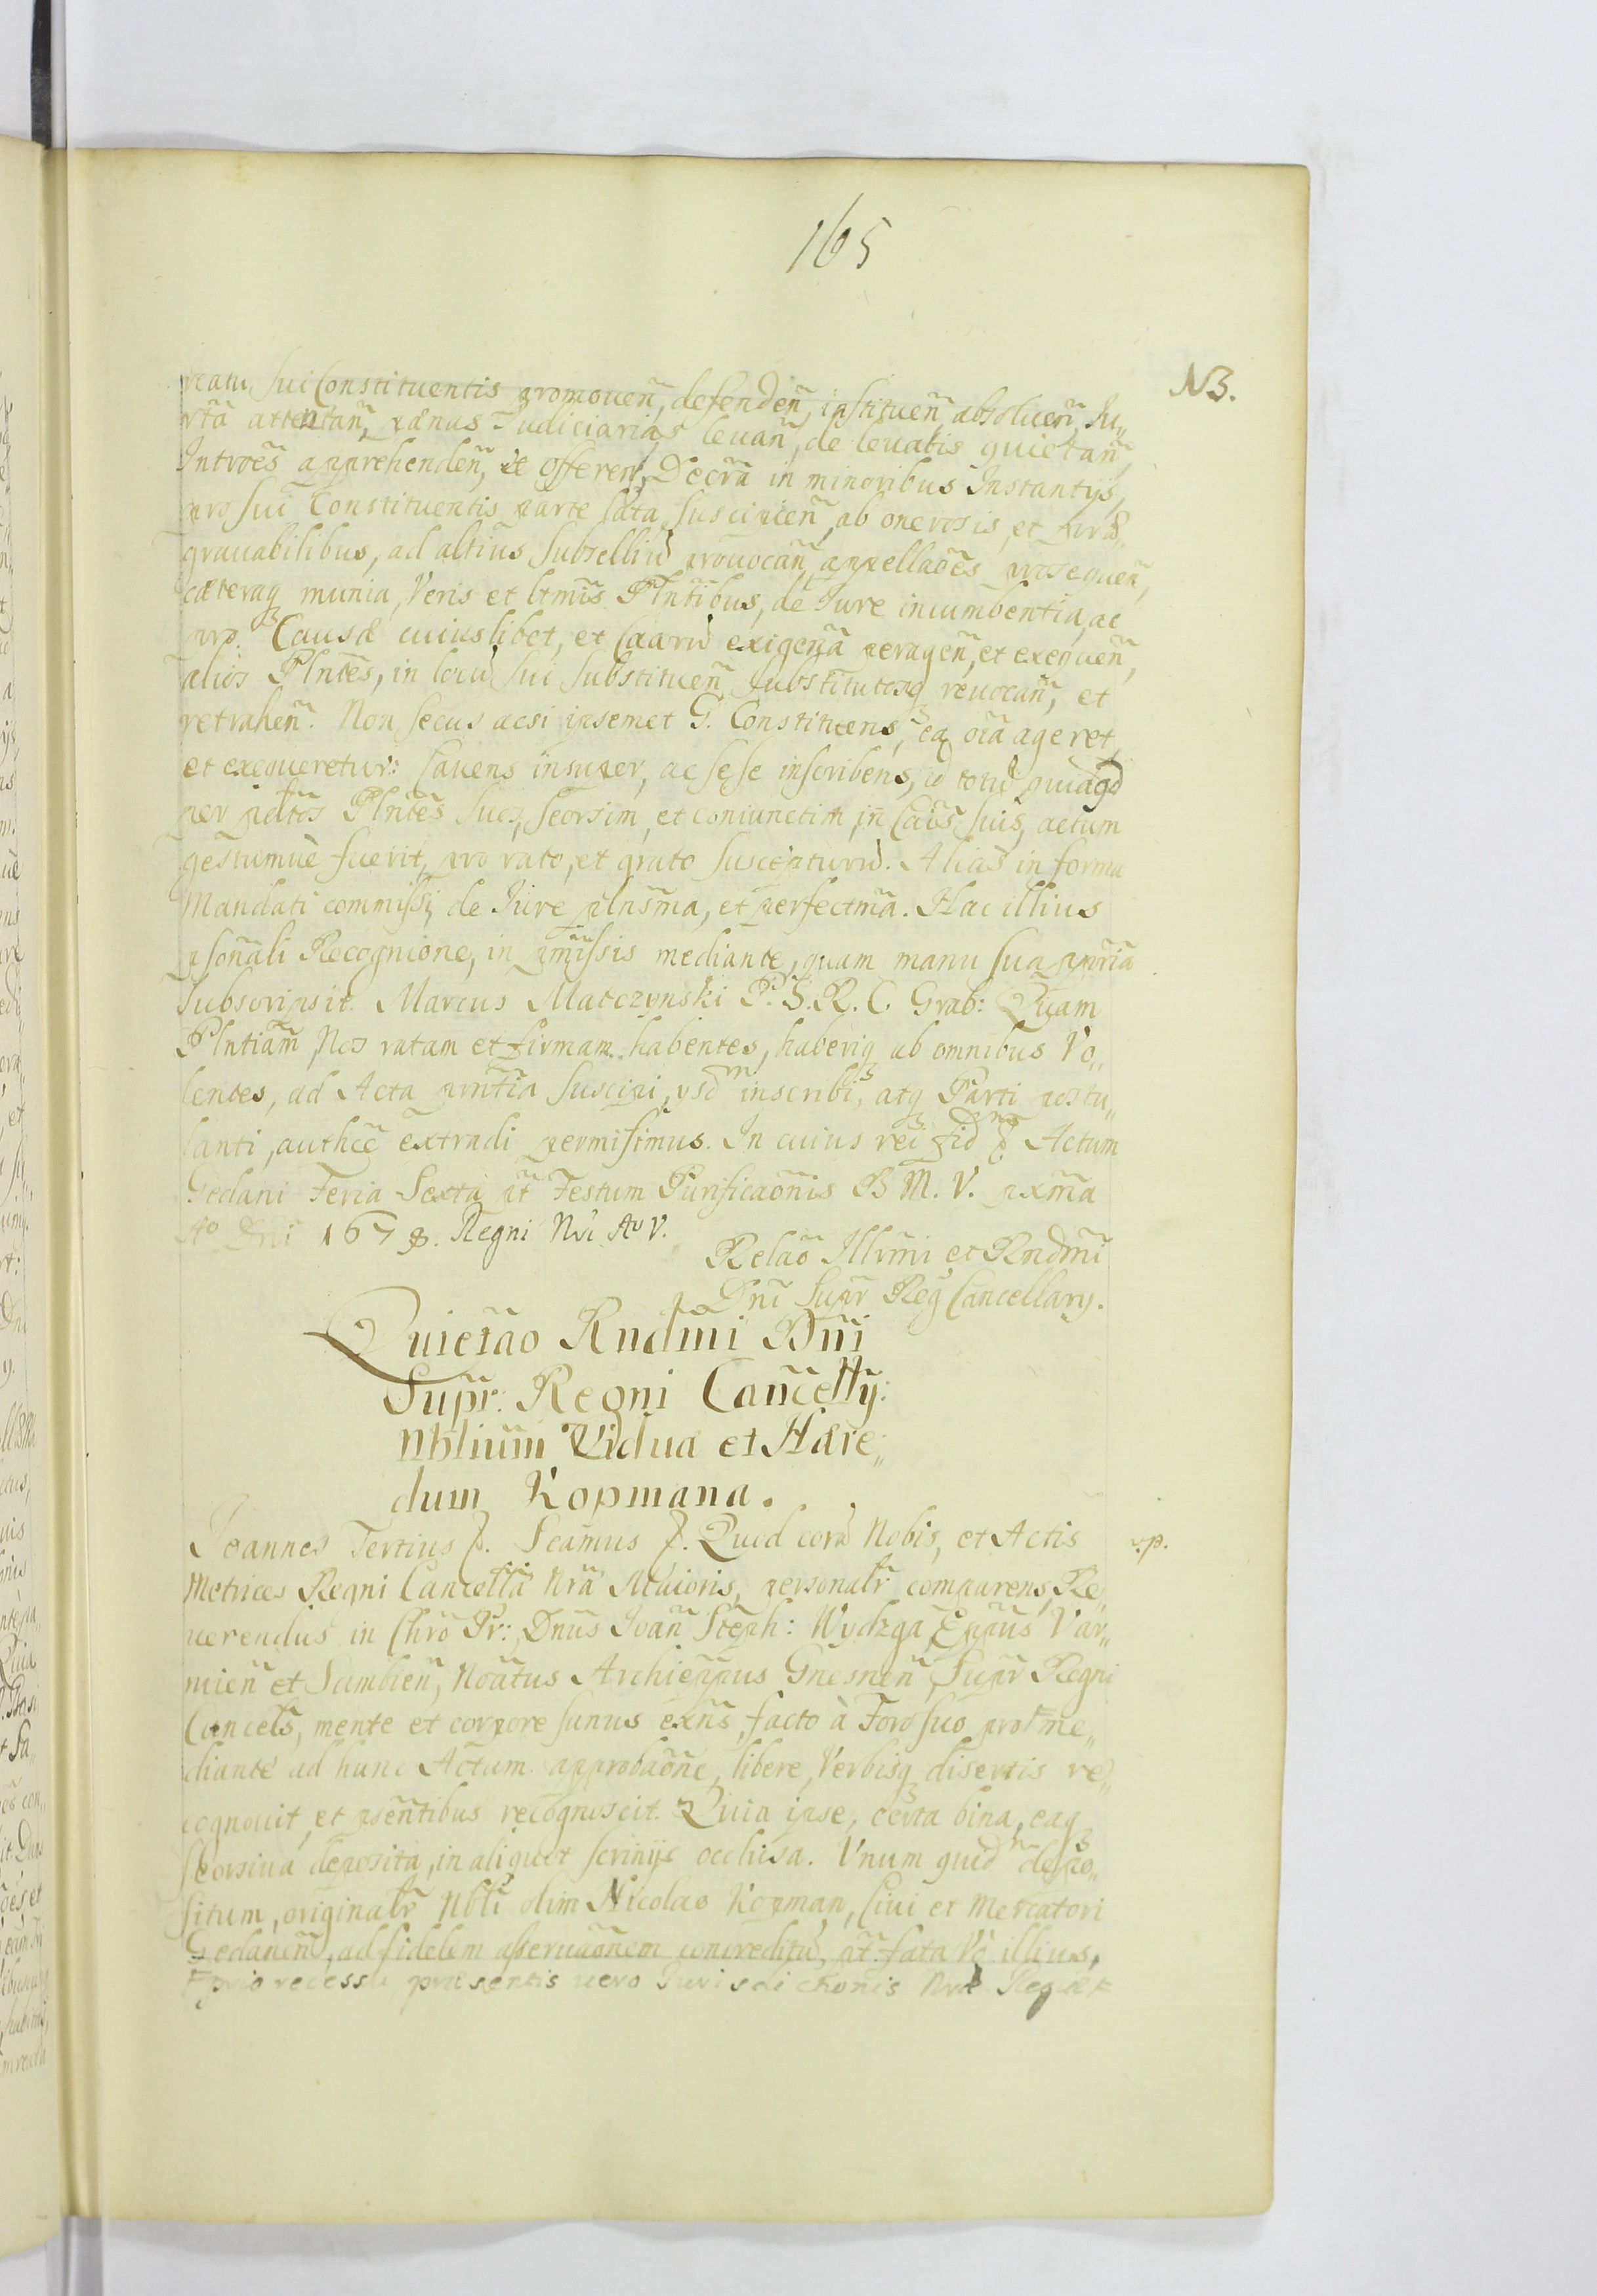 165
NB.
sui Constituentis promouen̄, defenden̄, instituen̄, absoluen̄, Iu„
r̃ta attentan̄, pænas Iudiciarias leuan̄, de leuatis quietan̄,
Introes̄ apprehenden̄, et offeren̄, Decr̃a in minoribus Instantijs,
pro sui Constituentis parte lata suscipien̄, ab onerosis, et præ„
grauabilibus, ad altius subselliũ prouocan̄, appellaōēs prosequen̄,
cæteraq́ munia, Veris et ltm̄is Plnt̄ibus, de Iure incumbentia, ac
pro Causæ cuiuslibet, et Caarũ exigen̄a peragen̄, et exequen̄,
alios Plntēs, in locũ sui substituen̄, substitutosq́ reuocan̄, et
retrahen̄. Non secus acsi ipsemet G. Constituens, ea oīa ageret,
et exequeretur: Cauens insuper, ac sese inscribens, id totũ quidqd̄
per p̄dtōs Plntēs suos, seorsim, et coniunctim, in Caīs suis, actum
gestumuè fuerit, pro rato, et grato suscepturũ. Alias in forma
Mandati commissi, de Iure plnsm̄a, et perfectm̄a. Hac illius
p̱son̄ali Recognione, in p̄missis mediante, quam manu sua ppria
subscripsit. Marcus Matczynski P. S. R. C. Grab: Quam
Plntiam̄, Nos ratam et firmam habentes, haberiq́ ab omnibus Vo„
lentes, ad Acta prn̄tia suscipi, ysdm̄ inscribi, atq́ Parti postu„
lanti, authcē extradi permisimus. In cuius rei fidm̄ &. Actum
Gedani Feria Sexta pt̄ Festum Purificaōnis B M. V. pxm̄a
Ao Dn̄i 1678. Regni Nr̃i Ao V.
Relaō Illrmi et Rndm̄i
Dn̄i Supr̄ Reg Cancellary.
Quietaō Rndm̄i Dn̄i
Supr̄: Regni Cancell̄y:
Nbliūm Vidua et Hære„
dum Kopmana.
Ioannes Tertius &. Scām̄us &. Quod corã Nobis, et Actis
Metrices Regni Cancell̄a Nr̃a Maioris, personal̄r comparens, Re„
uerendus in Chr̄o Pr̄: Dn̄us Ioan̄ Steph: Wydzga Epp̄us Var„
mien̄ et Sambien̄, Noāt̄us Archiepp̄us Gnesnen̄ Supr̄ Regni
Cancel̄s, mente et corpore sanus exn̄s, facto à Foro suo prot̄ me„
diante ad hunc Actum approbaōne, libere, Verbisq́ disertis re„
cognouit, et p̄sen̄tibus recognoscit. Quia ipse, certa bina, eaq́
seorsiua deposita, in aliquot scrinijs occlusa. Vnum quidm̄ depo„
situm, originalr̄ Nbli olim Nicolao Kopman, Ciui et Mercatori
Gedanen̄, ad fidelem asseruaōnem concreditũ, pt̄ fata Vo illius,
recessu, præsentis uero Iurisdictionis Nræ Regiæ
v.p.